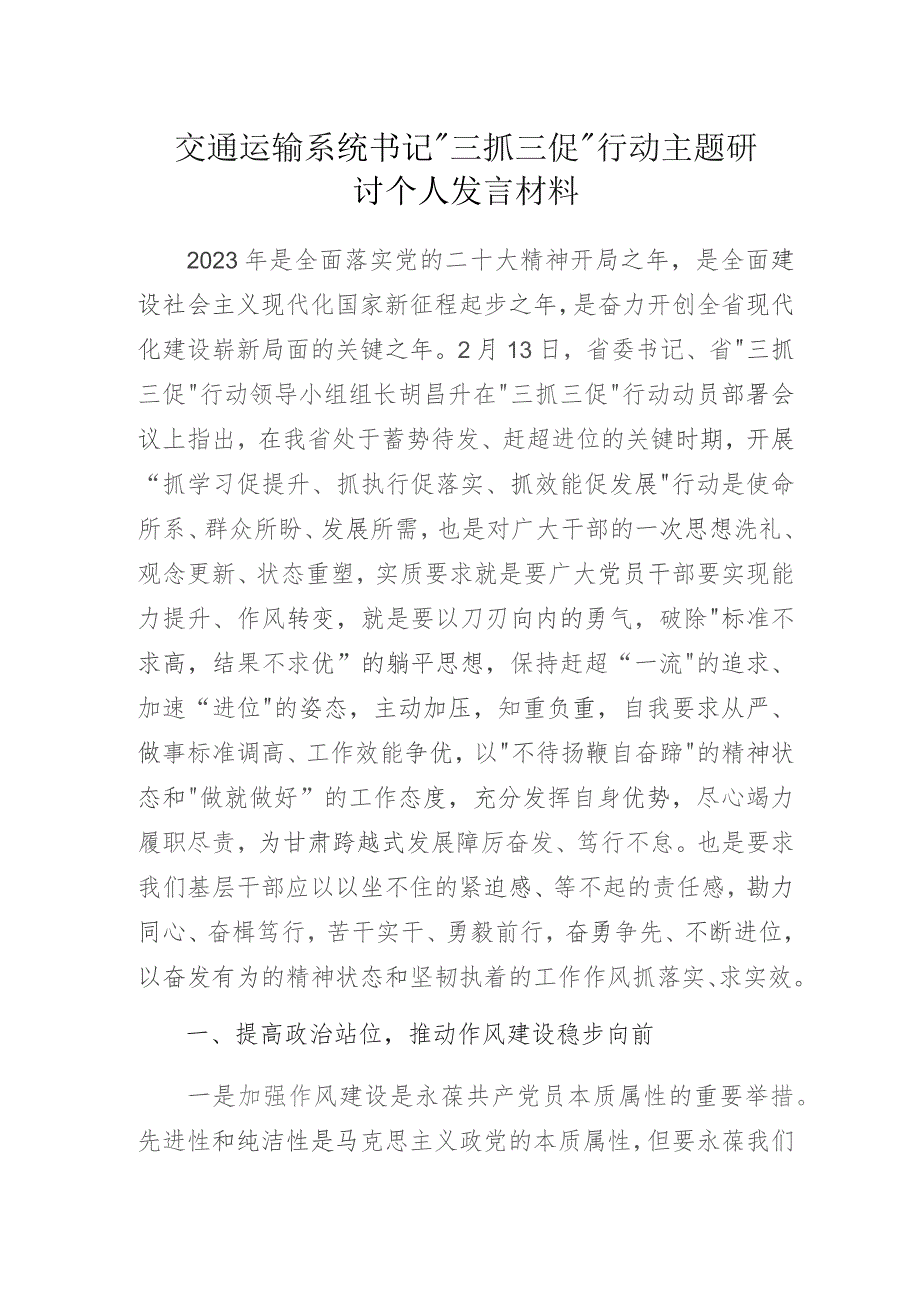 交通运输系统书记"三抓三促"行动主题研
讨个人发言材料
2023年是全面落实党的二十大精神开局之年，是全面建
设社会主义现代化国家新征程起步之年，是奋力开创全省现代
化建设崭新局面的关键之年。2月13日，省委书记、省"三抓
三促"行动领导小组组长胡昌升在"三抓三促"行动动员部署会
议上指出，在我省处于蓄势待发、赶超进位的关键时期，开展
“抓学习促提升、抓执行促落实、抓效能促发展"行动是使命
所系、群众所盼、发展所需，也是对广大干部的一次思想洗礼、
观念更新、状态重塑，实质要求就是要广大党员干部要实现能
力提升、作风转变，就是要以刀刃向内的勇气，破除"标准不
求高，结果不求优”的躺平思想，保持赶超“一流"的追求、
加速“进位"的姿态，主动加压，知重负重，自我要求从严、
做事标准调高、工作效能争优，以"不待扬鞭自奋蹄"的精神状
态和"做就做好”的工作态度，充分发挥自身优势，尽心竭力
履职尽责，为甘肃跨越式发展障厉奋发、笃行不怠。也是要求
我们基层干部应以以坐不住的紧迫感、等不起的责任感，勘力
同心、奋楫笃行，苦干实干、勇毅前行，奋勇争先、不断进位，
以奋发有为的精神状态和坚韧执着的工作作风抓落实、求实效。
一、提高政治站位，推动作风建设稳步向前
一是加强作风建设是永葆共产党员本质属性的重要举措。
先进性和纯洁性是马克思主义政党的本质属性，但要永葆我们